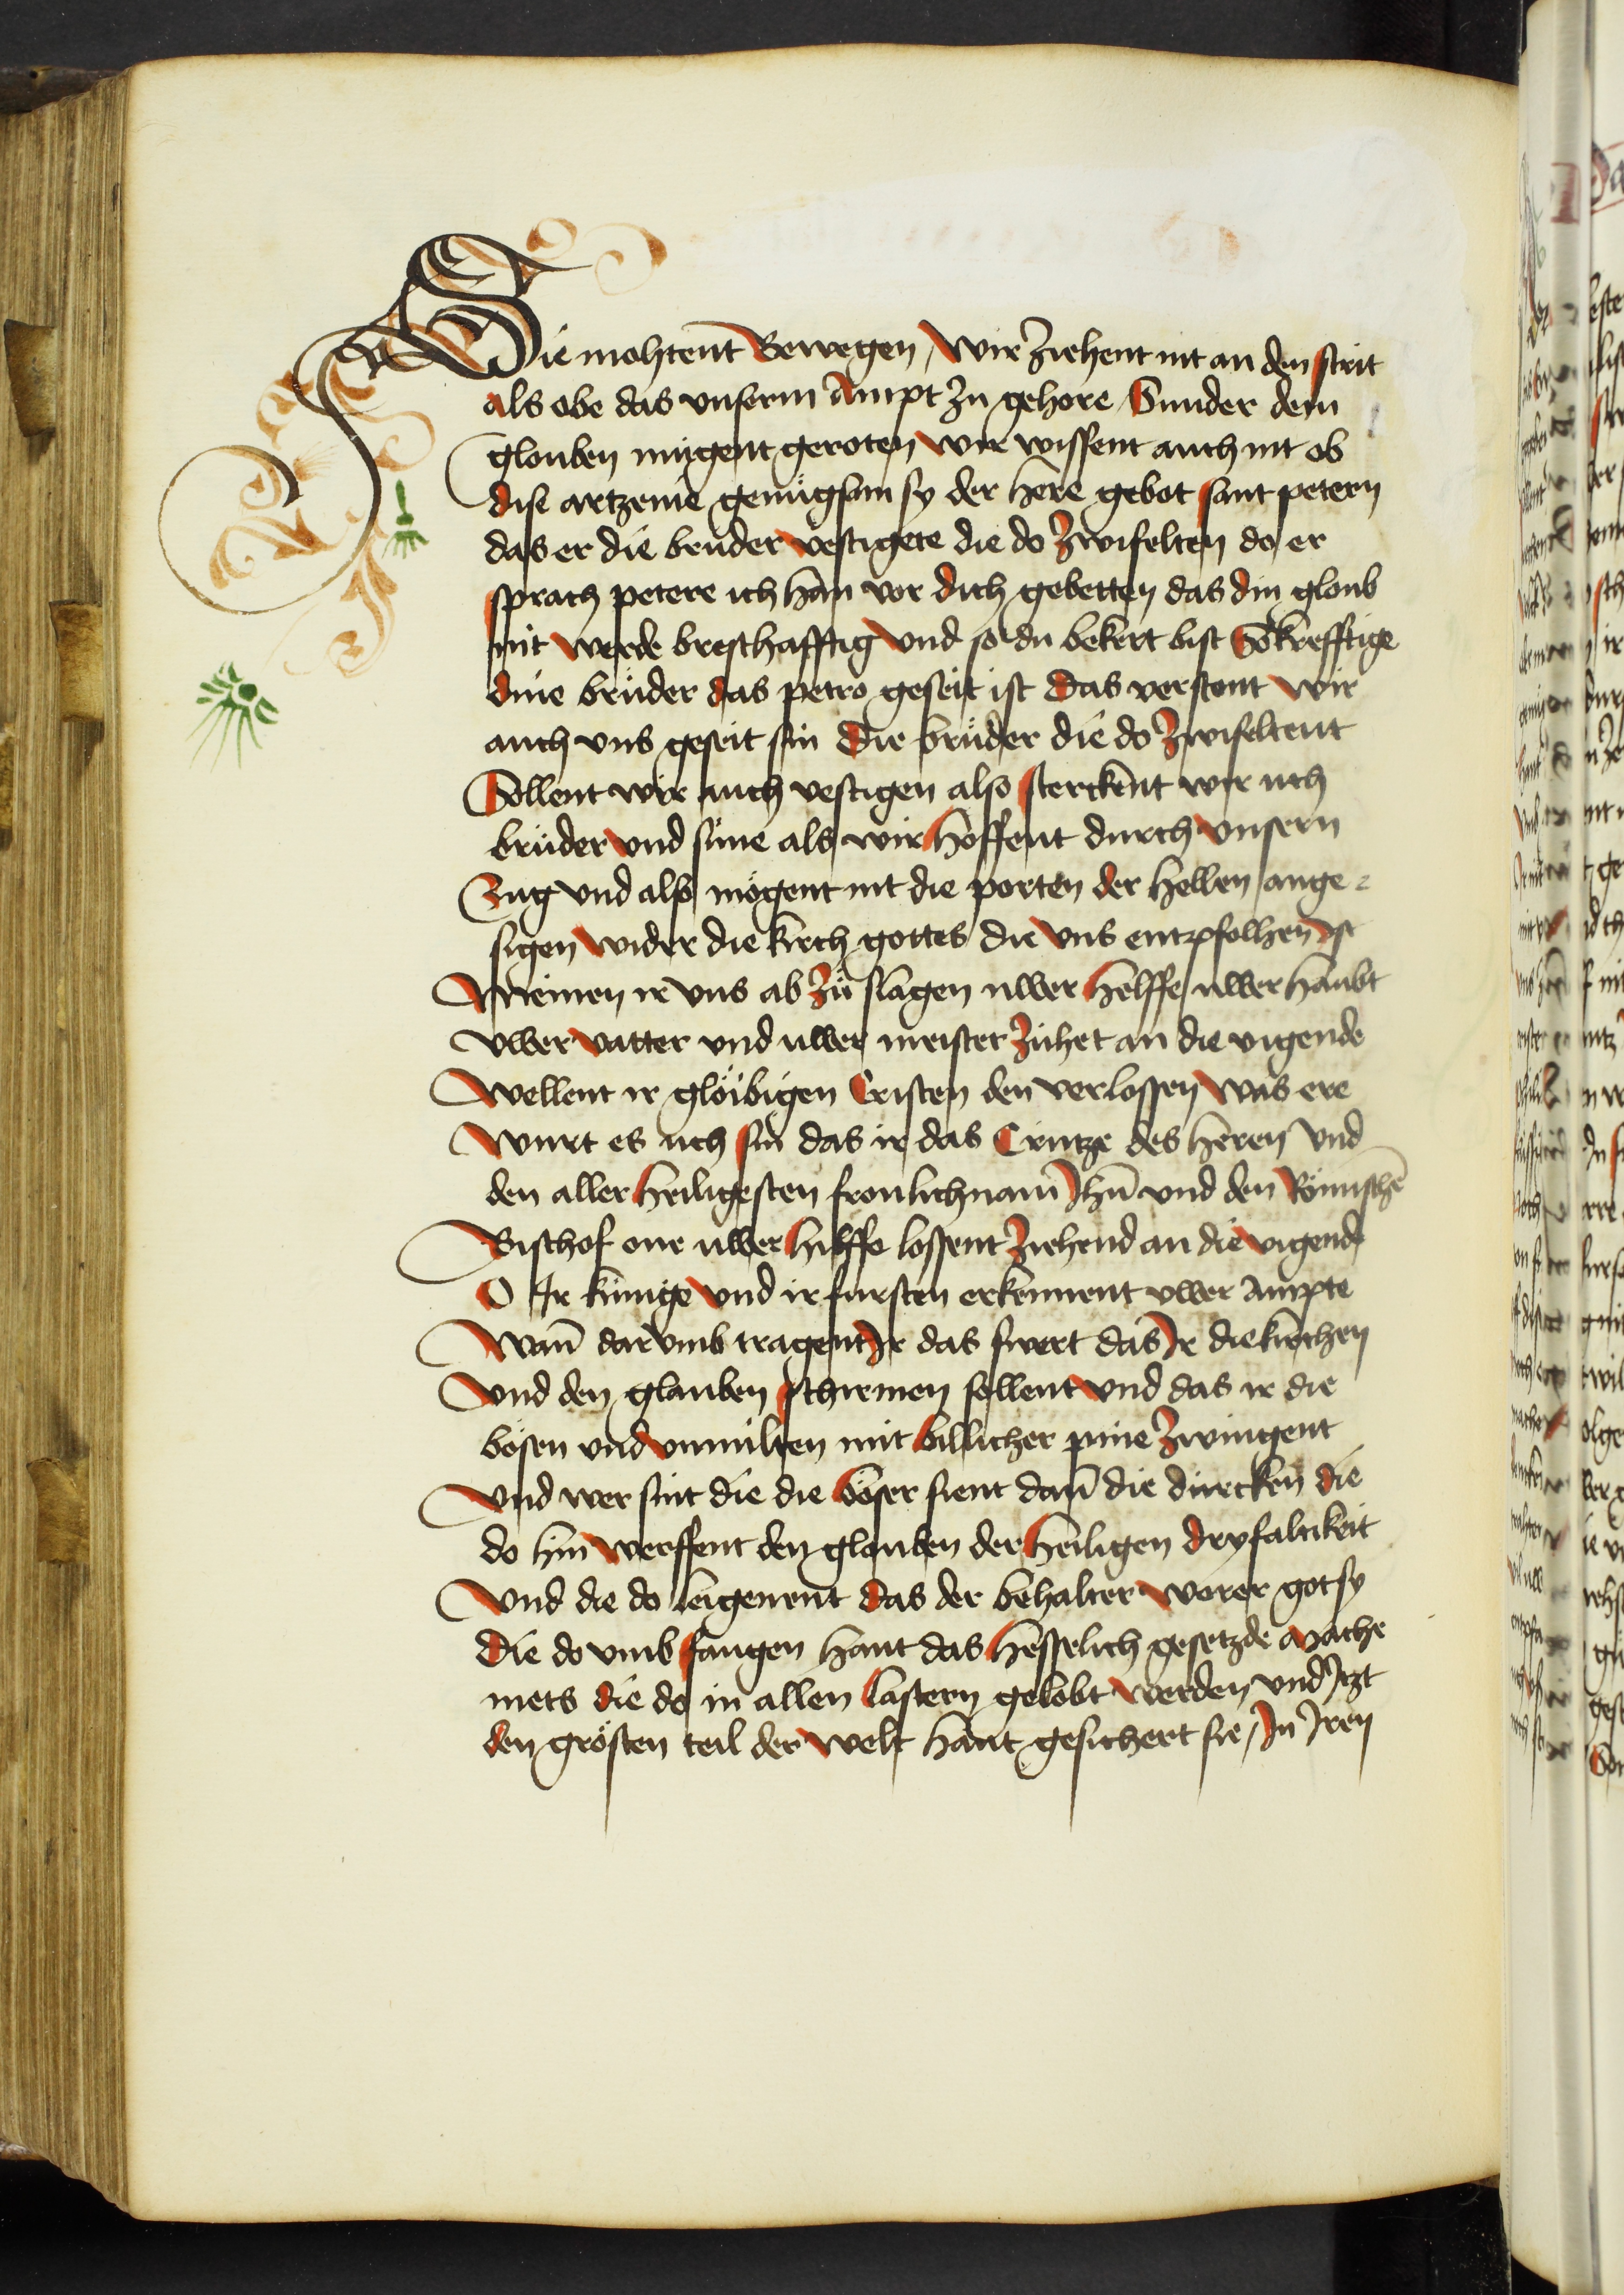 Die mohtent Bewegen / Wir ziehent nit an den strit
als obe das vnserm Ampt zu gehore / Sunder dem
glouben mügent geroten wir wissent auch nit ob
dise artzenie genügsam sy der here gebot sant petern
das er die brüder vestigete die do zwifelten do er
sprach petere ich han vor dich gebetten das din gloub
nit werde bresthafftig vnd so du bekert bist So krefftige
dine brüder das petro geseit ist Das verstont wir
auch vns geseit sin Die brüder die do zwifeltent
Sollent wir auch vestigen also sterckent wir uch
brüder vnd süne als wir hoffent durch vnsern
Zug vnd also mögent nit die porten der hellen ange
sigen wider die kirch gottes die vns entpfolhen ist
Meinen ir vns ab zü slagen uwer helffe uwer haubt
vwer vatter vnd uwer meister zühet an die vigende
Wellent ir glöibigen Cristen den verlossen was ere
Wurt es uch sin das ir das Crutze des heren vnd
den aller heiligesten fronlichnam Jhũ vnd den Römischẽ
Bischof one uwer hilffe lossent ziehend an die vigende
O Ir künige vnd ir fursten erkennent vwer ampte
Wañ darvmb tragent Jr das swert das Jr die kirchen
Vnd den glauben schirmen sollent vnd das ir die
bösen vnd vnmilten mit billicher pine zwingent
Vnd wer sint die die böser sient dañ die dürcken die
do hin werffent den glouben der heiligen dryfaltikeit
Vnd die do leigenent das der behalter worer got sy
Die do vmb fangen hant das hesselich gesetzde Mache
mets die do in allen lastern gelobt werden vnd Jtzt
den grösten teil der welt hant gesichert sie / Jn Jren